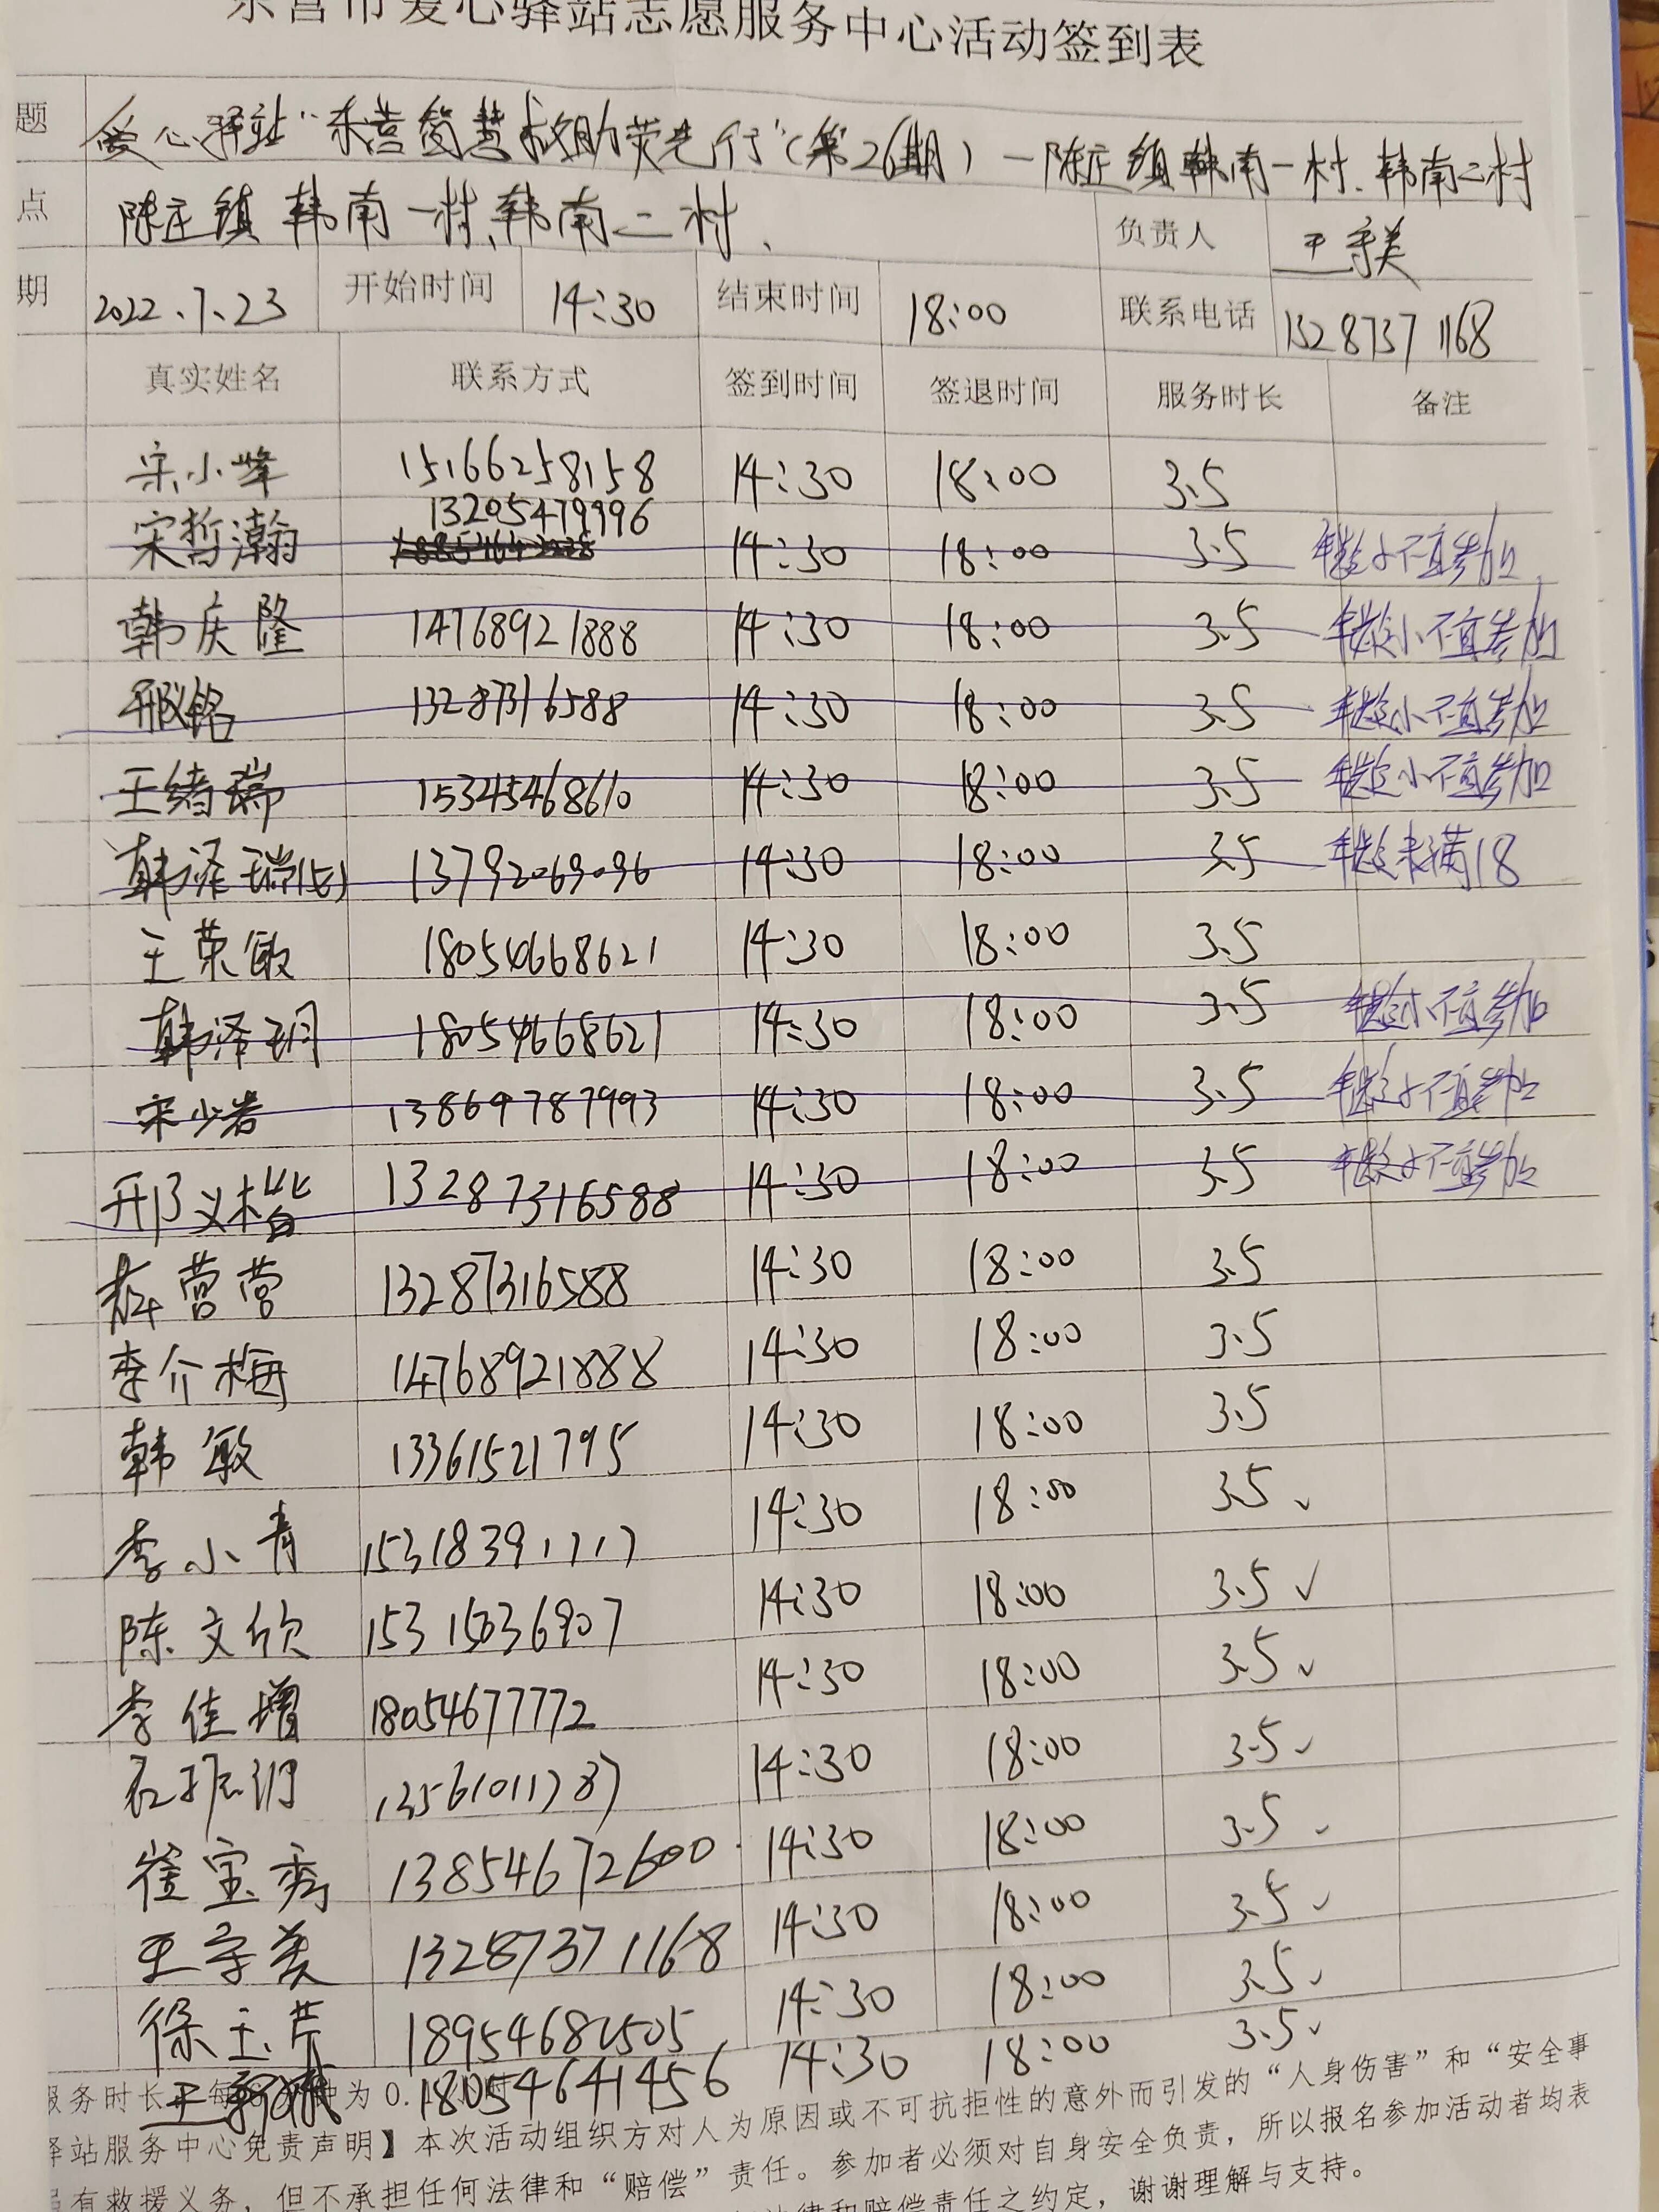 东营市爱心驿站志愿服务中心活动签到表
题 爱心驿站“东营智慧救助荧光行”(第26期)—陈庄镇韩南一村、韩南二村
点 陈庄镇韩南一村、韩南二村、 负责人 王守美
期 2022.7.23 开始时间 14:30 结束时间 18:00 联系电话 13287371168
真实姓名 联系方式 签到时间 签退时间 服务时长 备注
宋小峰 15166258158 14:30 18:00 3.5
13205479996
宋哲瀚 14:30 18:00 3.5 年龄小不宜参加
韩庆隆 14768921888 14:30 18:00 3.5 年龄小不宜参加
邢义铭 13287316588 14:30 18:00 3.5 年龄小不宜参加
王绪瑞 15345468610 14:30 18:00 3.5 年龄小不宜参加
韩泽瑞 13792069096 14:30 18:00 3.5 年龄未满18
王荣敏 18054668621 14:30 18:00 3.5
韩泽玥 18054668621 14:30 18:00 3.5 年龄小不宜参加
宋少岩 13869787993 14:30 18:00 3.5 年龄小不宜参加
邢义楷 13287316588 14:30 18:00 3.5 年龄小不宜参加
营营 13287316588 14:30 18:00 3.5
李介梅 14768921888 14:30 18:00 3.5
韩敏 13361521795 14:30 18:00 3.5
李小青 15318391717 14:30 18:00 3.5 ✓
陈文欣 15315036907 14:30 18:00 3.5 ✓
李佳增 18054677772 14:30 18:00 3.5 ✓
石振 14:30 18:00 3.5 ✓
崔宝秀 13854672600 14:30 18:00 3.5 ✓
王守美 13287371168 14:30 18:00 3.5 ✓
徐玉芹 14:30 18:00 3.5 ✓
王 18054641456 14:30 18:00 3.5 ✓
服务时长 每 为0.
驿站服务中心免责声明】本次活动组织方对人为原因或不可抗拒性的意外而引发的“人身伤害”和“安全事
有救援义务，但不承担任何法律和“赔偿”责任。参加者必须对自身安全负责，所以报名参加活动者均表
法律和赔偿责任之约定，谢谢理解与支持。